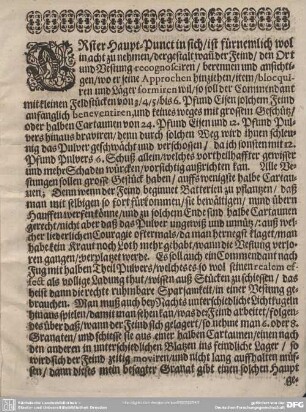 DErster Haupt-Punct in sich / ist fürnemlich wol
in acht zu nehmen / dergestalt wañ der Feind / den Ort
und Vestung recognosciren / berennen und ansichti-
gen / wo er seine Approchen hinziehen / item / blocqui-
ren und Läger formiren wil / so soll der Commendant
mit kleinen Feldstücken von 3/4/5/ bis 6. Pfund Eisen solchem Feind
anfänglich beneventiren / und keines weges mit grossem Geschütz
oder halben Cartaunen von 24. Pfund Eisen und 12. Pfund Pul-
vers hinaus bravieren / denn durch solchen Weg wird ihnen schleu-
nig das Pulver geschwächt und verschossen / da ich sonsten mit 12.
Pfund Pulvers 6. Schuß allein / welches vortheilhaffter / gewisser
und mehr Schaden würcken / vorsichtig ausrichten kan. Alle Ve-
stungen sollen grosse Geschütz haben / auffs wenigste halbe Cartau-
nen; Denn wenn der Feind beginnet Batterien zu pflantzen / daß
man mit selbigen so fort fürkommen / sie bewältigen / und übern
Hauffen werffen könne / und zu solchem Ende sind halbe Cartaunen
gerecht / nicht aber daß das Pulver ungewiß und unnütz / auß wel-
cher liederlichen Courage oftermals / da man hernach klaget / man
habe kein Kraut noch Loth mehr gehabt / wann die Vestung verlo-
ren gangen / verplatzet werde. Es soll auch ein Commendant nach
Zug mit halben Theil Pulvers / welches es so wol seinen realem ef-
fect als vollige Ladung thut / wissen auß Stücken zu schiessen / das
heist dann die rechte rühmbare Sparsamkeit / in einer Vestung ge-
brauchen. Man muß auch bey Nachts unterschiedliche Lichtkugeln
hinaus spielen / damit man sehen kan / was der Feind arbeitet / folgen-
des über daß / wann der Feind sich gelagert / so nehme man 6. oder 8.
Granaten / und schiesse sie aus einer halben Cartaunen / einen nach
den anderen in unterschiedlichen Blätzen ins feindliche Läger / so
wird sich der Feind zeitig moviren / und nicht lang auffhalten müs-
sen / dann dieses mein besagter Granat gibt einen hauptsächlichen
ge-